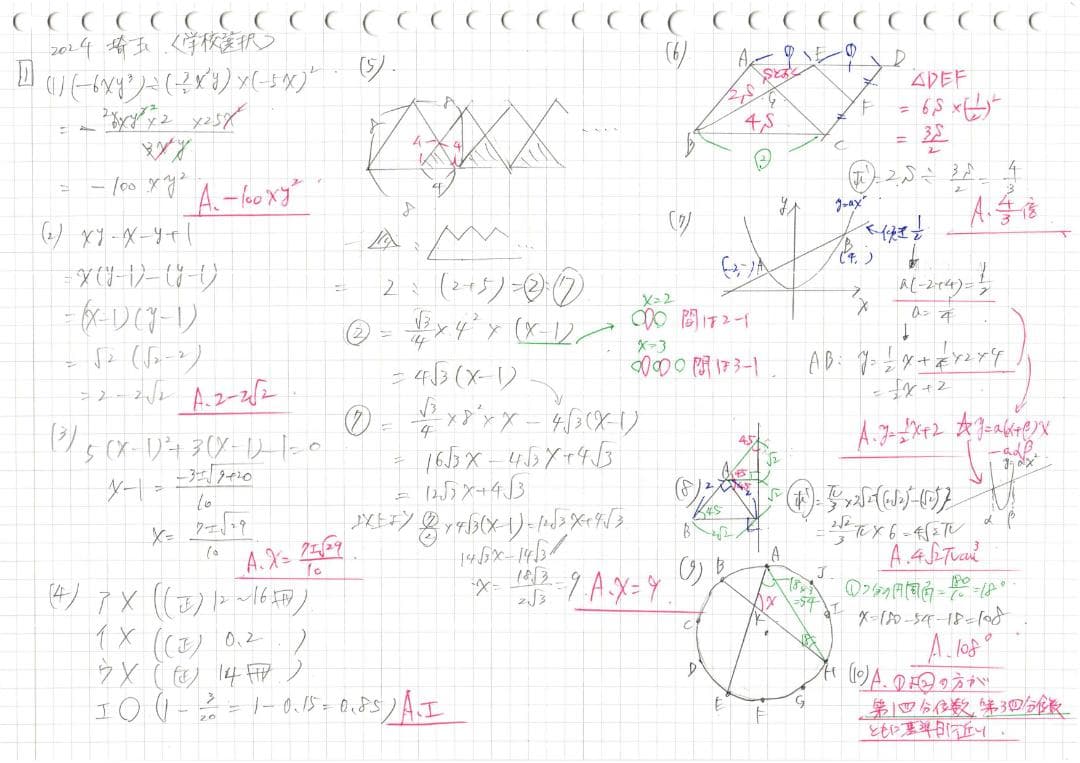 2024 埼玉 (学校選択)
1
(1) (-6xy³)÷(-3/2x²y)×(-5x)²
= - 6xy³×2 ×25x² / 3x²y
= -100xy²
A. -100xy²
(2) xy-x-y+1
= x(y-1)-(y-1)
= (x-1)(y-1)
= √2 (√2-2)
= 2-2√2
A. 2-2√2
(3)
5(x-1)²+3(x-1)-1=0
x-1 = -3±√9+20 / 10
x = 7±√29 / 10
A. x = 7±√29 / 10
(4) ア × ((正) 12~16冊)
イ × ((正) 0.2 )
ウ × ((正) 14冊)
エ ○ (1 - 3/20 = 1-0.15 = 0.85)
A. エ
(5).
8
8
4
4
4
8
= 2 : (2+5) = ② : ⑦
② = √3/4 × 4² × (x-1)
x=2
間は2-1
x=3
間は3-1
= 4√3(x-1)
⑦ = √3/4 × 8² × x - 4√3(x-1)
= 16√3x-4√3x+4√3
= 12√3x+4√3
以上より 7/2 ×4√3(x-1)=12√3x+4√3
14√3x-14√3
x = 18√3 / 2√3 = 9.
A. x = 9
(6)
A ① E ① D
Sとおく
2S G
4S
F
B ② C
△DEF
= 6S × (1/2)²
= 3S/2
(求) = 2S ÷ 3S/2 = 4/3
A. 4/3倍
(7)
y
y=ax²
傾き 1/2
B
(4, )
(-2, ) A
x
a(-2+4) = 1/2
a = 1/4
AB: y = 1/2x + 1/4×2×4
= 1/2x+2
A. y = 1/2x+2
☆ y=a(α+β)x
-aαβ
y=ax²
α β
(8)
45
√2
A
45
45
√2
2
2
B 45
2√2
(求) = π/3 ×2√2{(2√2)²-(√2)²}
= 2√2/3 π × 6 = 4√2π
A. 4√2πcm³
(9)
A
B
J
C
I
18×3
=54
x
K
18
D
H
E
F
G
①つ分の円周角 = 180/10 = 18°
x=180-54-18=108
A. 108°
(10)
A. ①より②の方が
第1四分位数, 第3四分位数
ともに基準日に近い.